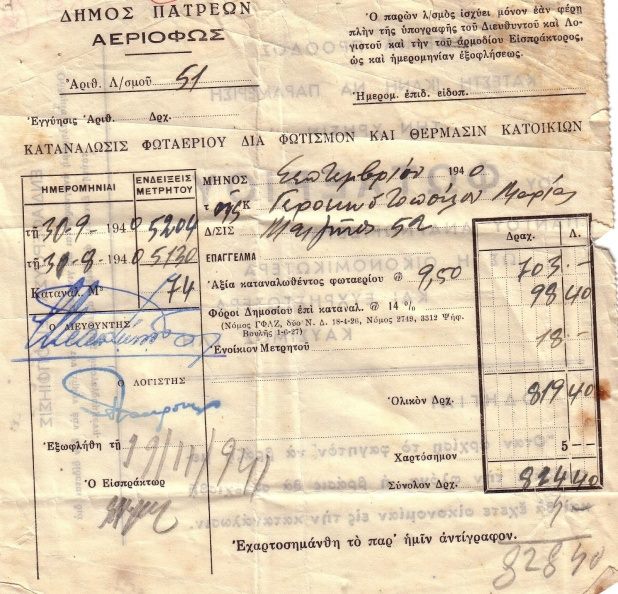 ΔΗΜΟΣ ΠΑΤΡΕΩΝ
ΑΕΡΙΟΦΩΣ
Ἀριθ. Λ/σμοῦ 51
Ἐγγύησις Ἀριθ. Δρχ.
Ὁ παρὼν λ/σμὸς ἰσχύει μόνον ἐὰν φέρῃ
πλὴν τῆς ὑπογραφῆς τοῦ Διευθυντοῦ καὶ Λο-
γιστοῦ καὶ τὴν τοῦ ἁρμοδίου Εἰσπράκτορος,
ὡς καὶ ἡμερομηνίαν ἐξοφλήσεως.
Ἡμερομ. ἐπιδ. εἰδοπ.
ΚΑΤΑΝΑΛΩΣΙΣ ΦΩΤΑΕΡΙΟΥ ΔΙΑ ΦΩΤΙΣΜΟΝ ΚΑΙ ΘΕΡΜΑΣΙΝ ΚΑΤΟΙΚΙΩΝ
ΗΜΕΡΟΜΗΝΙΑΙ ΕΝΔΕΙΞΕΙΣ ΜΕΤΡΗΤΟΥ
τῇ 30-9-1940 5204
τῇ 31-8-1940 5130
Καταναλ. Μ³ 74
ΜΗΝΟΣ Σεπτεμβρίου 1940
τ ῆς Κ Μαρίας
Δ/ΣΙΣ 52
ΕΠΑΓΓΕΛΜΑ
Δραχ. Λ.
Ἀξία καταναλωθέντος φωταερίου @ 9,50 703 -
Φόροι Δημοσίου ἐπὶ καταναλ. @ 14 % 98 40
(Νόμος ΓΦΛΖ, δύο Ν. Δ. 18-4-26, Νόμος 2749, 3312 Ψήφ.
Βουλῆς 1-6-27)
Ἐνοίκιον Μετρητοῦ 18 -
Ὁλικὸν Δρχ. 819 40
Χαρτόσημον 5 —
Σύνολον Δρχ. 824 40
Ὁ ΔΙΕΥΘΥΝΤΗΣ
Ὁ ΛΟΓΙΣΤΗΣ
Ἐξωφλήθη τῇ
Ὁ Εἰσπράκτωρ
Ἐχαρτοσημάνθη τὸ παρ' ἡμῖν ἀντίγραφον.
828 40